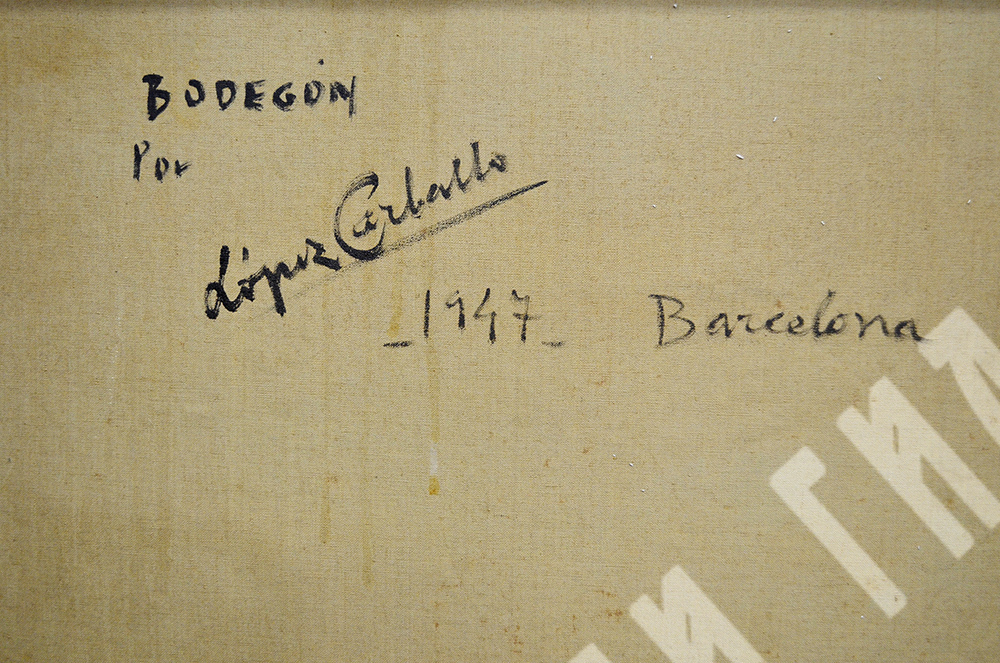 BODEGÓN
Por
López Carballo
_1947_ Barcelona